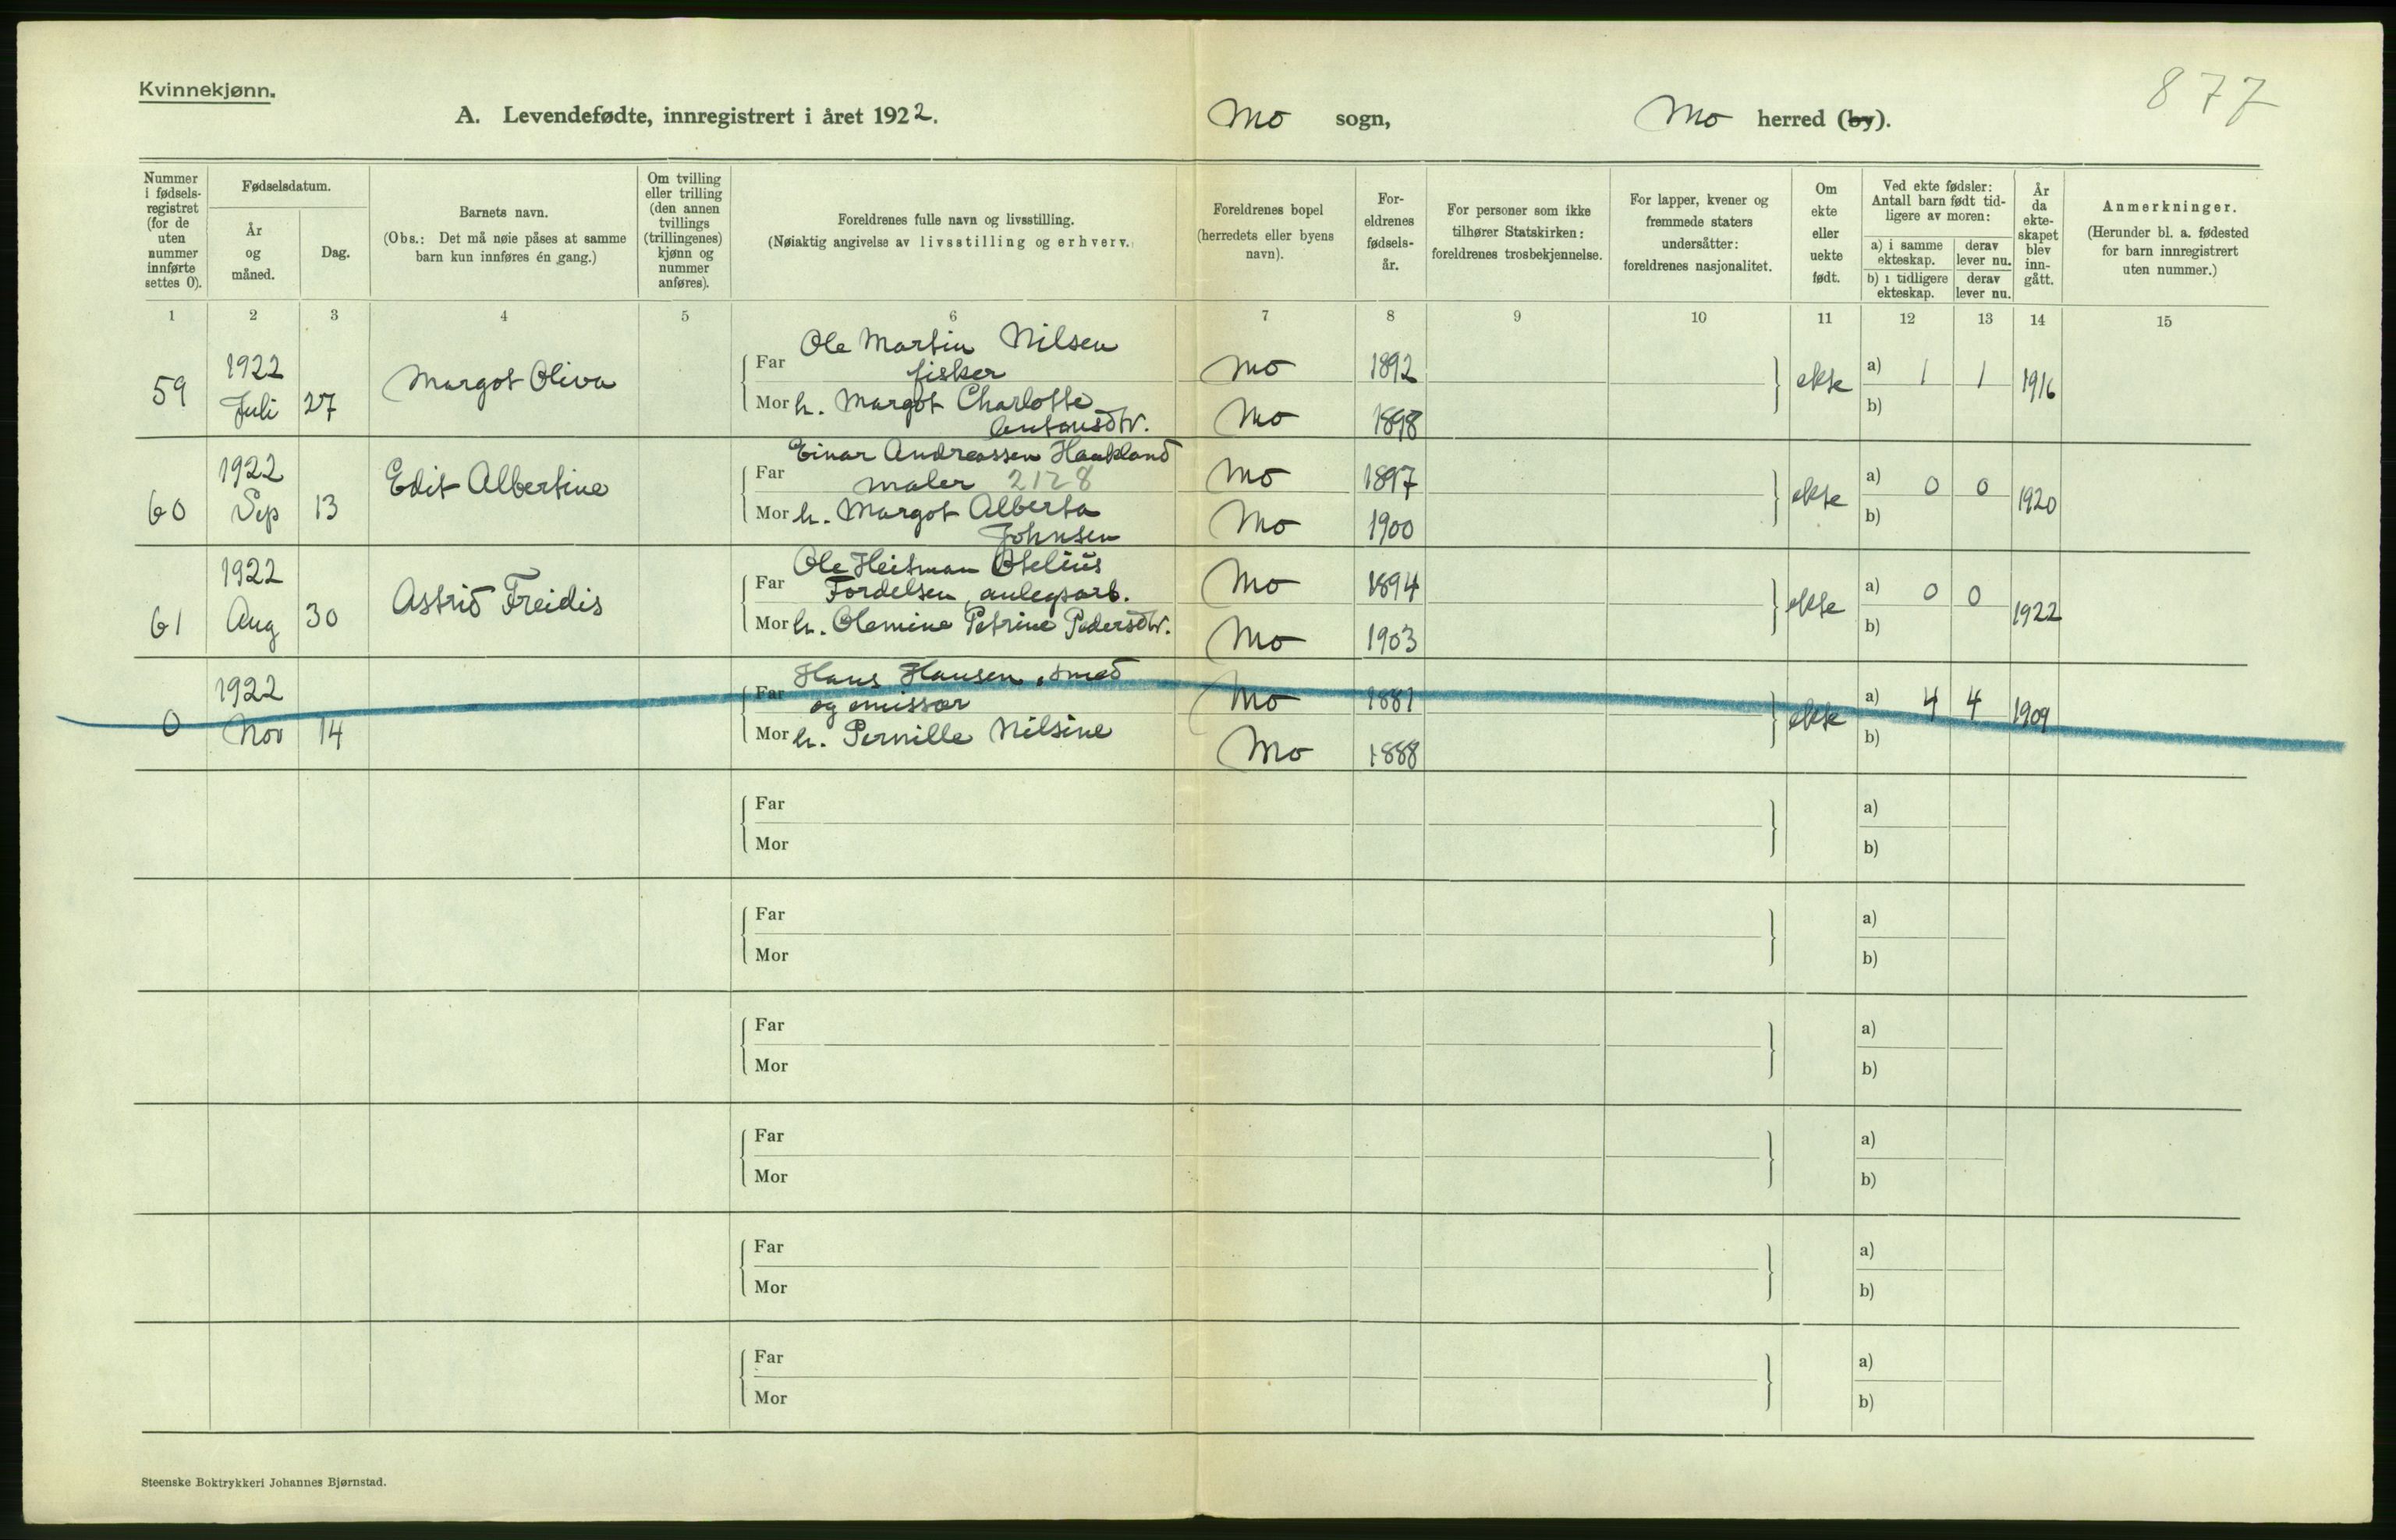 Kvinnekjønn.
877
A. Levendefødte, innregistrert i året 1922. Mo sogn, Mo herred (by).
Nummer i fødsels-registret (for de uten nummer innførte settes 0).
Fødselsdatum.
År og måned.
Dag.
Barnets navn.
(Obs.: Det må nøie påses at samme barn kun innføres én gang.)
Om tvilling eller trilling (den annen tvillings (trillingenes) kjønn og nummer anføres).
Foreldrenes fulle navn og livsstilling.
(Nøiaktig angivelse av livsstilling og erhverv.)
Foreldrenes bopel (herredets eller byens navn).
For-eldrenes fødsels-år.
For personer som ikke tilhører Statskirken: foreldrenes trosbekjennelse.
For lapper, kvener og fremmede staters undersåtter: foreldrenes nasjonalitet.
Om ekte eller uekte født.
Ved ekte fødsler: Antall barn født tid-ligere av moren:
a) i samme ekteskap.
derav lever nu.
b) i tidligere ekteskap.
derav lever nu.
År da ekte-skapet blev inn-gått.
Anmerkninger.
(Herunder bl. a. fødested for barn innregistrert uten nummer.)
1 2 3 4 5 6 7 8 9 10 11 12 13 14 15
59 1922 Juli 27 Margot Oliva
Far Ole Martin Nilsen fisker Mo 1892
Mor h. Margot Charlotte Antonsdtr. Mo 1898
ekte a) 1 1 1916
b)
60 1922 Sep 13 Edit Albertine
Far Einar Andreassen Haakland maler 2128 Mo 1897
Mor h. Margot Alberta Johnsen Mo 1900
ekte a) 0 0 1920
b)
61 1922 Aug 30 Astrid Freidis
Far Ole Heitman Otelius Fordelsen, anlegsarb. Mo 1894
Mor h. Olemine Petrine Pedersdtr. Mo 1903
ekte a) 0 0 1922
b)
0 1922 Nov 14
Far Hans Hansen, smed og emissær Mo 1881
Mor h. Pernille Nilsine Mo 1888
ekte a) 4 4 1909
b)
Far a)
Mor b)
Far a)
Mor b)
Far a)
Mor b)
Far a)
Mor b)
Far a)
Mor b)
Far a)
Mor b)
Steenske Boktrykkeri Johannes Bjørnstad.